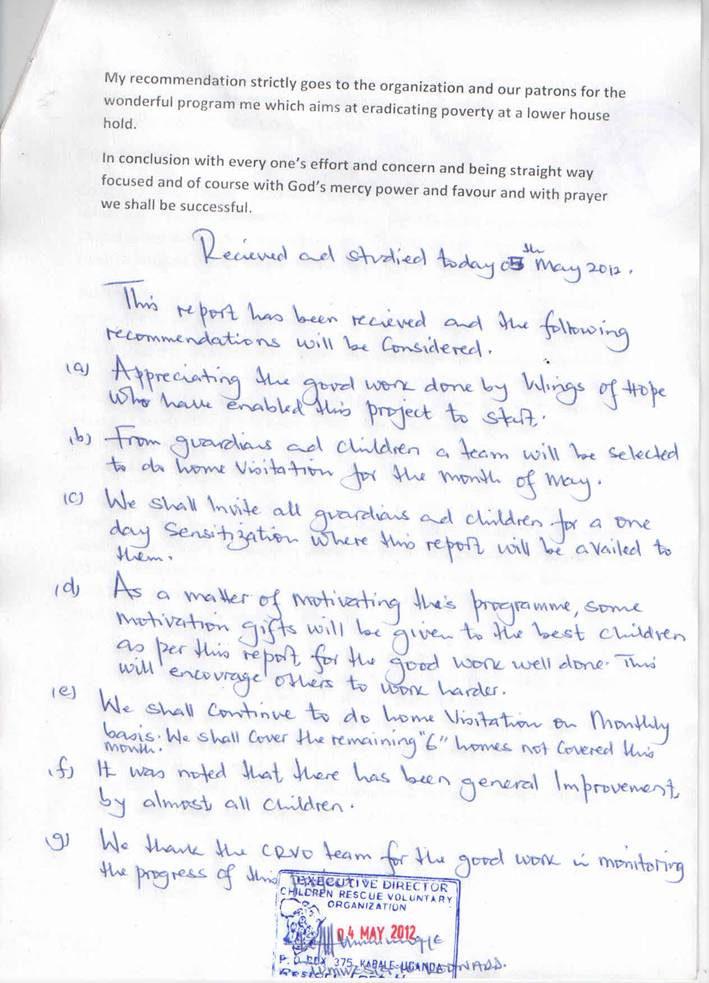 My recommendation strictly goes to the organization and our patrons for the
wonderful program me which aims at eradicating poverty at a lower house
hold.
In conclusion with every one's effort and concern and being straight way
focused and of course with God's mercy power and favour and with prayer
we shall be successful.
Recieved and studied today 05th May 2012.
This report has been recieved and the following
recommendations will be Considered.
(a) Appreciating the good work done by Wings of Hope
who have enabled this project to start.
(b) From guardians ad children a team will be selected
to do home Visitation for the month of May.
(c) We shall Invite all guardians ad children for a one
day Sensitization where this report will be availed to
them.
(d) As a matter of motivating this programme, some
motivation gifts will be given to the best children
as per this report for the good work well done. This
will encourage others to work harder.
(e) We shall Continue to do home Visitation on Monthly
basis. We shall Cover the remaining "6" homes not Covered this
month.
(f) It was noted that there has been general Improvement,
by almost all children.
(g) We thank the CRVO team for the good work in monitoring
the progress of this
EXECUTIVE DIRECTOR
CHILDREN RESCUE VOLUNTARY
ORGANIZATION
04 MAY 2012
P.O BOX 375, KABALE-UGANDA